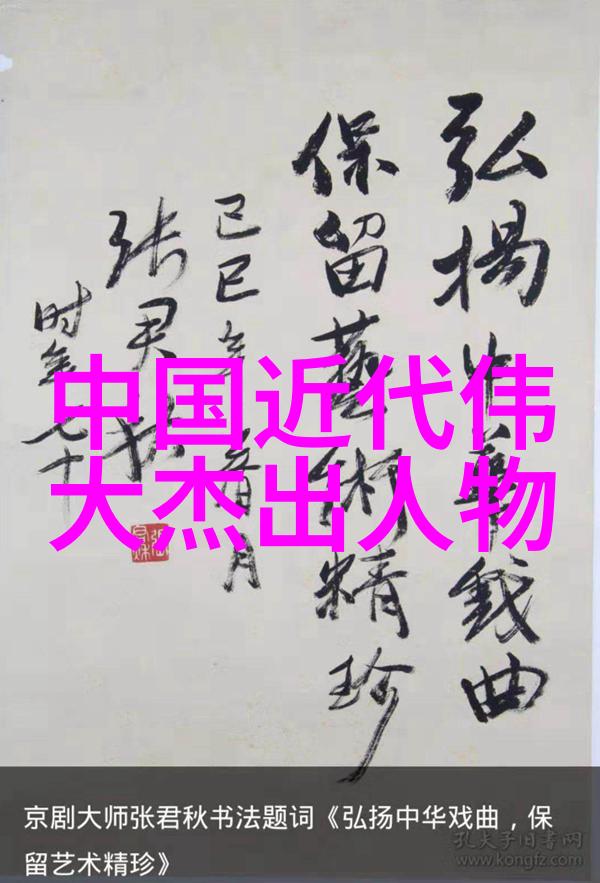 弘揚中華戲曲
保留藝術精珍
己巳
张君秋
时年七十
中国近代伟
大杰出人物
京剧大师张君秋书法题词《弘扬中华戏曲，保
留艺术精珍》
孔夫子旧书网
www.kongfz.com